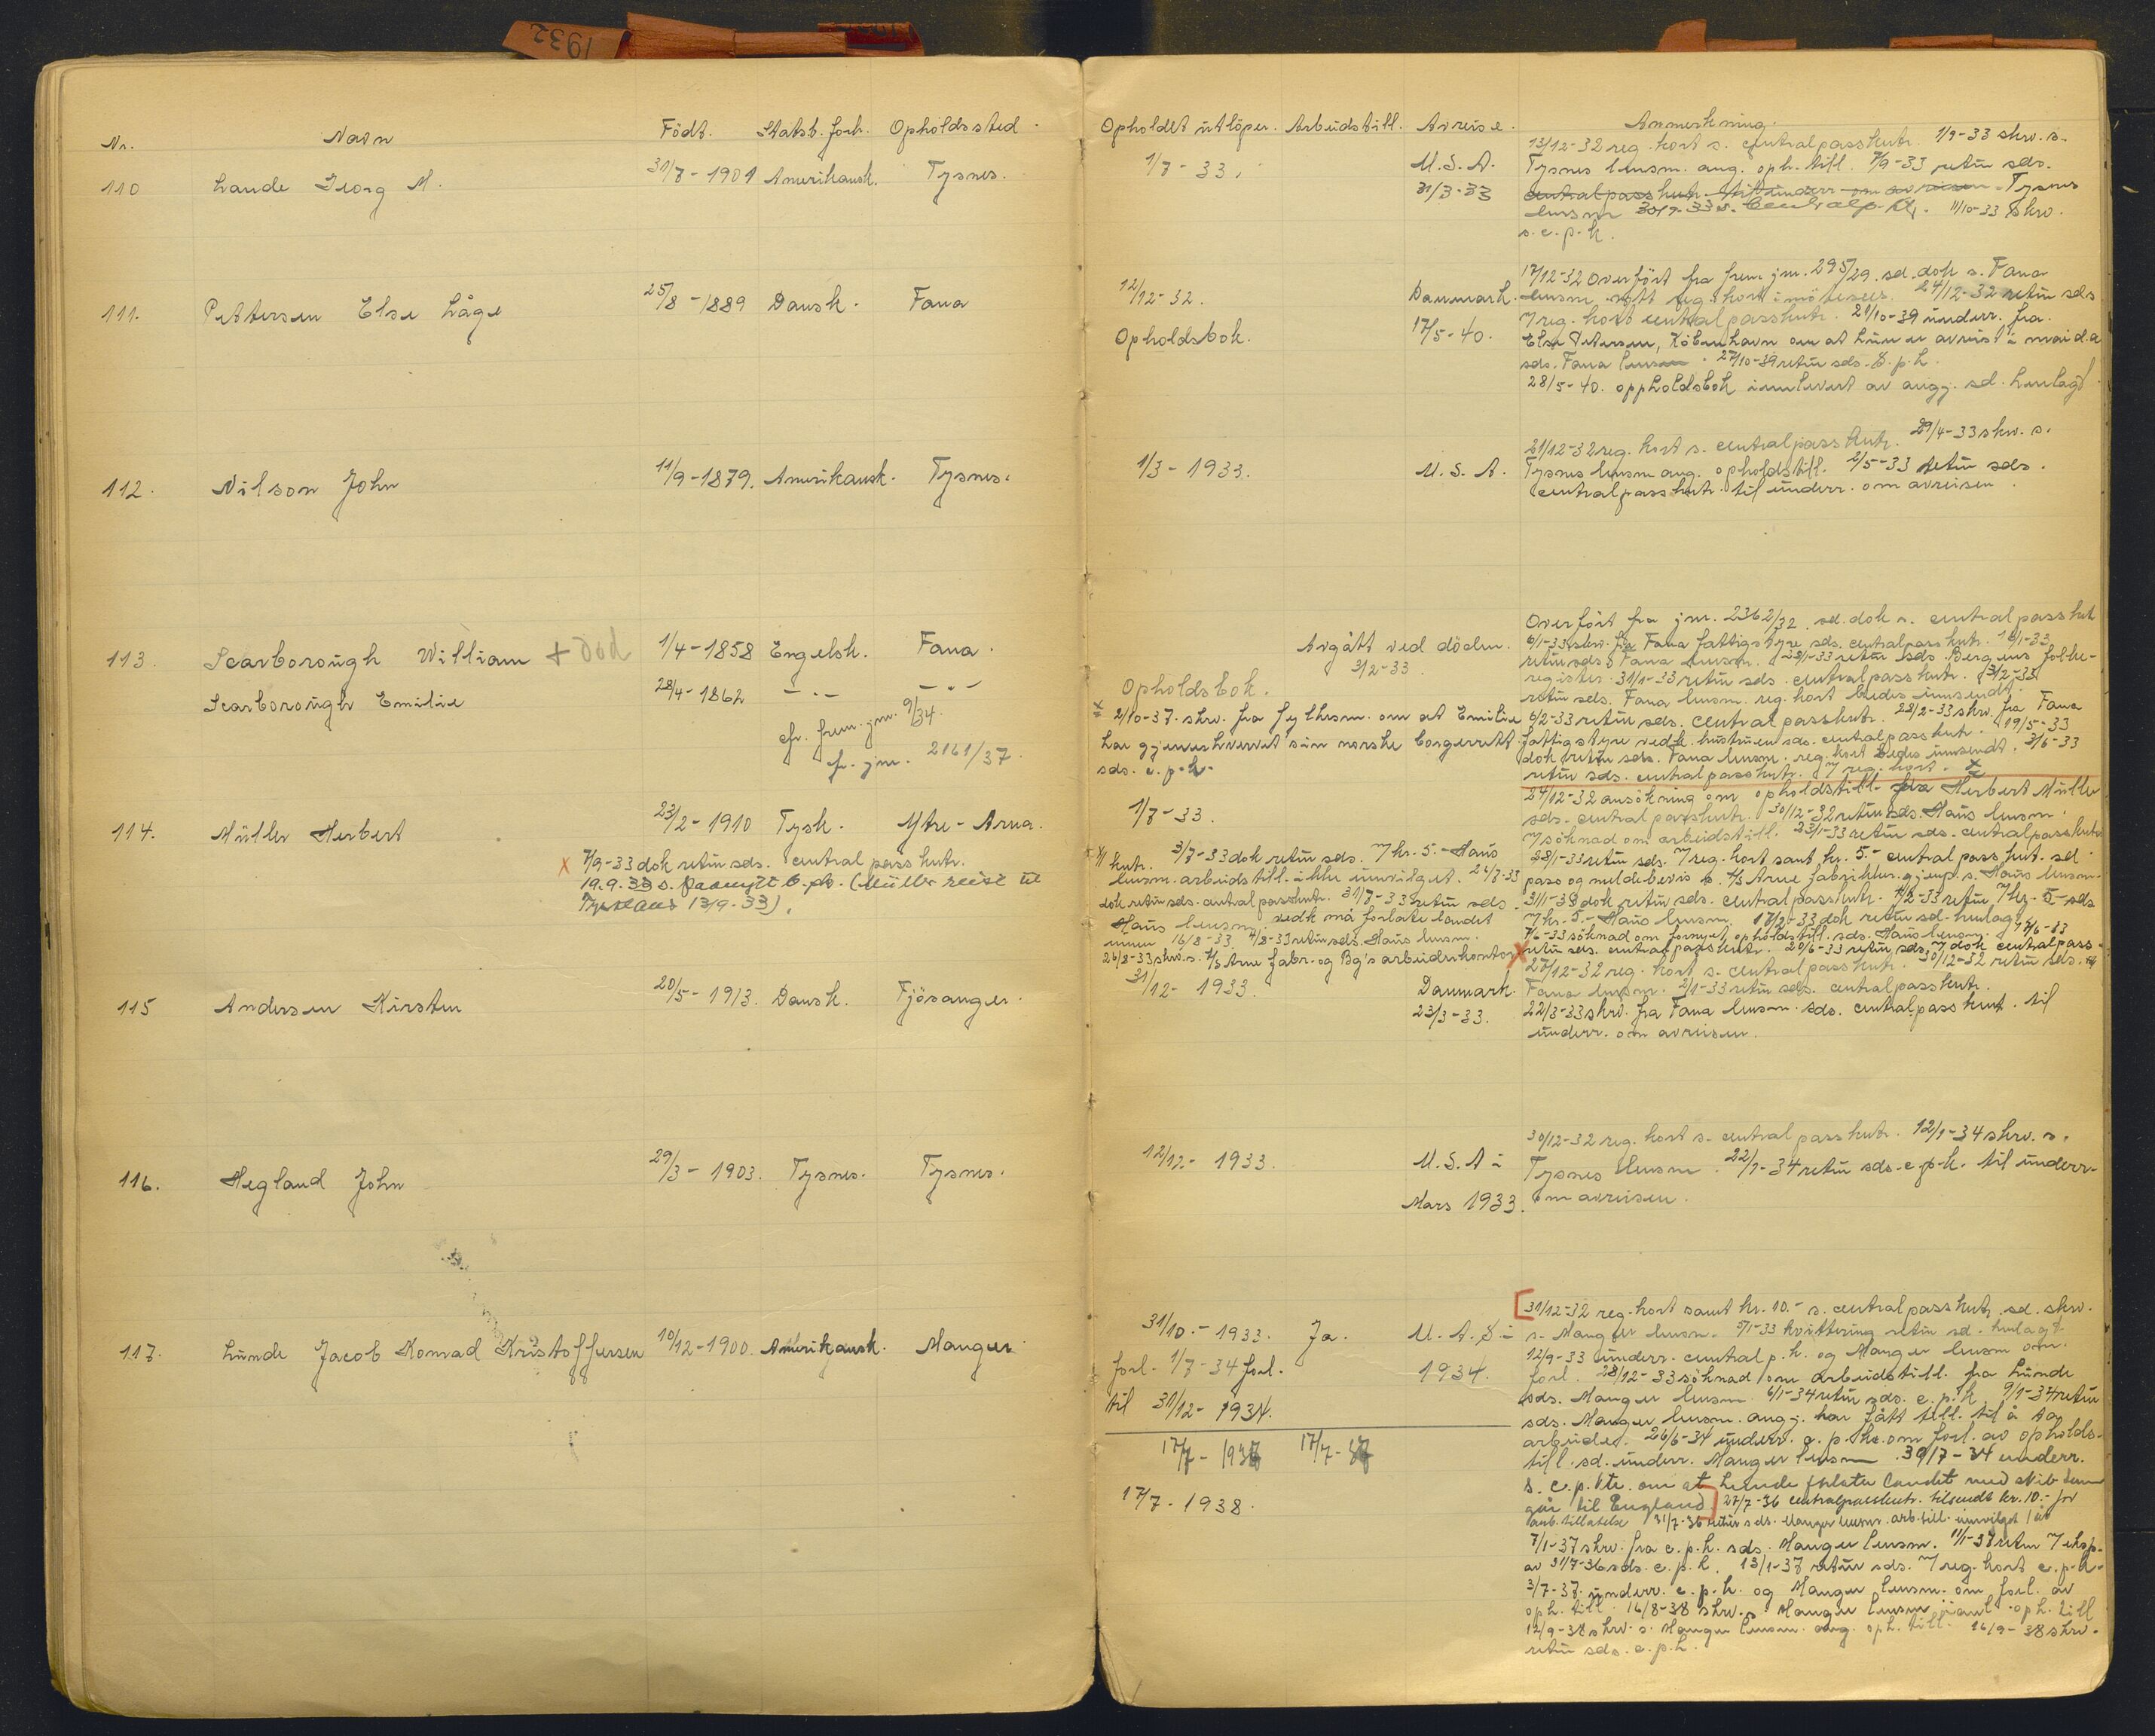 1932
Nr. Navn Födt. Statsb. forh. Opholdssted
110 Lande Georg M. 31/7-1901 Amerikansk. Tysnes.
111. Pettersen Else Låge 25/8-1889 Dansk. Fana
112. Nilson John 11/9-1879. Amerikansk. Tysnes.
113. Scarborough William + Död 1/4-1858 Engelsk. Fana.
Scarborough Emilie 28/4-1862 -"- -"-
cfr. frem. jnr. 9/34.
fr. jnr. 2161/37.
114. Müller Herbert 23/2-1910 Tysk. Ytre-Arna.
x 7/9-33 dok retur sds. central passkntr.
19.9.33 s.
(Müller reist til
Tyskland 13/9-33).
115 Andersen Kirsten 20/5-1913. Dansk. Fjösanger.
116. Hegland John 29/3-1903. Tysnes. Tysnes.
117. Lunde Jacob Konrad Kristoffersen 10/12-1900. Amerikansk. Manger
Opholdet utlöper. Arbeidstill. Avreise. Anmerkning.
13/12-32 reg. kort s. centralpasskntr. 1/9-33 skrv. s.
1/7-33. U.S.A. Tysnes lensm. ang. oph. till. 7/9-33 retur sds.
31/3-33 centralpasskntr. til underr. om avreisen. Tysnes
lensm 30/9-33 s. Centralp.k. 11/10-33 skrv.
s. c. p. k.
17/12-32 Overfört fra frem. jnr. 295/29. sd. dok s. Fana
12/12-32. Danmark. lensm. nytt reg. kort imötesees. 24/12-32 retur sds
7 reg. kort centralpasskntr. 21/10-39 underr. fra
Opholdsbok. 17/5-40. Else Petersen, Köbenhavn om at hun er avreist i mai d.a
sds. Fana lensm. 27/10-39 retur sds. c. p. k.
28/5-40. oppholdsbok innlevert av angj. sd. henlagt.
21/12-32 reg. kort s. centralpasskntr. 29/4-33 skrv. s.
1/3-1933. U.S.A. Tysnes lensm ang. opholdstill. 2/5-33 retur sds.
centralpasskntr. til underr. om avreisen.
Overfört fra jnr. 2362/32. sd. dok s. centralpasskntr
Avgått ved döden. 6/1-33 skrv. fra Fana fattigstyre sds. centralpasskntr. 18/1-33
3/2-33. retur sds Fana lensm. 28/1-33 retur sds Bergens folke-
register. 31/1-33 retur sds. centralpasskntr. 3/2-33
Opholdsbok. retur sds. Fana lensm. reg. kort bedes innsendt.
x 2/10-37. skrv. fra fylkesm. om at Emilie 6/2-33 retur sds. centralpasskntr. 28/2-33 skrv. fra Fana
har gjenerhvervet sin norske borgerrett fattigstyre vedk. hustruen sds. centralpasskntr. 19/5-33
sds. c. p. k. dok retur sds. Fana lensm. reg. kort bedes innsendt. 3/6-33
retur sds. centralpasskntr. 7 reg. kort. x
24/12-32 ansökning om opholdstill. fra Herbert Müller
1/7-33. sds. centralpasskntr. 30/12-32 retur sds. Haus lensm.
7 söknad om arbeidstill. 23/1-33 retur sds. centralpasskntr
28/1-33 retur sds. 7 reg. kort samt kr. 5.- centralpasskntr. sd.
kntr. 3/7-33 dok retur sds. 7 kr. 5.- Haus pass og meldebevis s. A/s Arne fabrikker. gjenp. s. Haus lensm.
lensm. arbeidstill. ikke innvilget. 24/7-33 dok retur sds. centralpasskntr. 4/2-33 retur 7 kr. 5-sds
dok retur sds. centralpasskntr. 31/7-33 retur sds. 7 kr. 5.- Haus lensm. 17/2-33 dok retur sd. henlagt.
Haus lensm. vedk må forlate landet 7/6-33 söknad om fornyet opholdstill. sds. Haus lensm. 15/6-33
innen 16/8-33. 4/8-33 retur sds. Haus lensm. retur sds. centralpasskntr. 20/6-33 retur sds. 7 dok centralpass-
26/8-33 skrv. s. A/s Arne fabr. og Bg's arbeiderkontor x
27/12-32 reg. kort s. centralpasskntr. 30/12-32 retur sds.
31/12-1933. Danmark. Fana lensm. 2/1-33 retur sds. centralpasskntr.
23/3-33. 22/3-33 skrv. fra Fana lensm. sds. centralpasskont. til
underr. om avreisen.
30/12-32 reg. kort s. centralpasskntr. 12/1-34 skrv. s.
12/12-1933. U.S.A i Tysnes lensm. 22/1-34 retur sds. c. p. k. til underr.
Mars 1933. om avreisen.
31/12-32 reg. kort samt kr. 10.- s. centralpasskntr sd. skrv.
31/10.-1933. Ja. U.A.S i s. Manger lensm. 5/1-33 kvittering retur sd. henlagt.
12/9-33 underr. centralp.k. og Manger lensm om
forl. 1/7-34 forl. 1934. forl. 28/12-33 söknad om arbeidstill. fra Lunde
til 31/12-1934. sds. Manger lensm. 6/1-34 retur sds. c. p. k. 9/1-34 retur
sds. Manger lensm. angj. har fått till. til å ta
17/7-1937 17/7-37 arbeide. 26/6-34 underr. c. p. k. om forl. av opholds-
till. sd. underr. Manger lensm. 30/7-34 underr.
17/7.1938. s. c. p. k. om at Lunde forlater landet med skib som
går til England. 27/7-36 centralpasskntr. tilsendt kr. 10.- for
arb. tillatelse 31/7-36 retur sds. Manger lensm. arb. till. innvilget 1 år
7/1-37 skrv. fra c. p. k. sds. Manger lensm. 11/1-37 retur 7 eksp.
av 31/7-36 sds. c. p. k. 13/1-37 retur sds. 7 reg. kort c. p. k.
3/7-37 underr. c. p. k. og Manger lensm. om forl. av
oph. till. 16/8-38 skrv. s. Manger lensm oph. till
12/9-38 skrv. s. Manger lensm. ang. oph. till. 16/9-38 skrv.
retur sds. c. p. k.